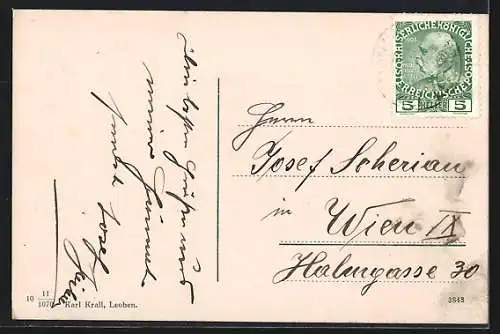 KAISERLICHE KÖNIGLICHE
ÖSTERREICHISCHE POST
5 HELLER 5
Die besten Grüße aus
meiner Heimat
Josef
Herrn
Josef Scherian
in
Wien IX
Hahngasse 30
10 11/1070 Karl Krall, Leoben.
3648